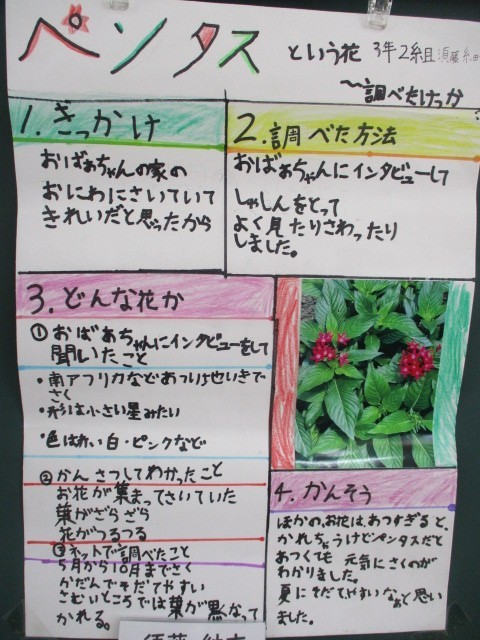 ペンタス という花 3年2組
〜調べたけっか
1.きっかけ
おばあちゃんの家の
おにわにさいていて
きれいだと思ったから
2.調べた方法
おばあちゃんにインタビューして
しゃしんをとって
よく見たりさわったり
しました。
3.どんな花か
①おばあちゃんにインタビューをして
聞いたこと
・南アフリカなどあついちいきで
さく
・形は小さい星みたい
・色は赤い白・ピンクなど
②かんさつしてわかったこと
お花が集まってさいていた
葉がざらざら
花がつるつる
③ネットで調べたこと
5月から10月までさく
かだんでそだてやすい
さむいところでは葉が黒なって
かれる。
4.かんそう
ほかのお花は、あつすぎると、
かれちゃうけどペンタスだと
あつくても元気にさくのが
わかりました。
夏にそだてやすいなぁと思い
ました。